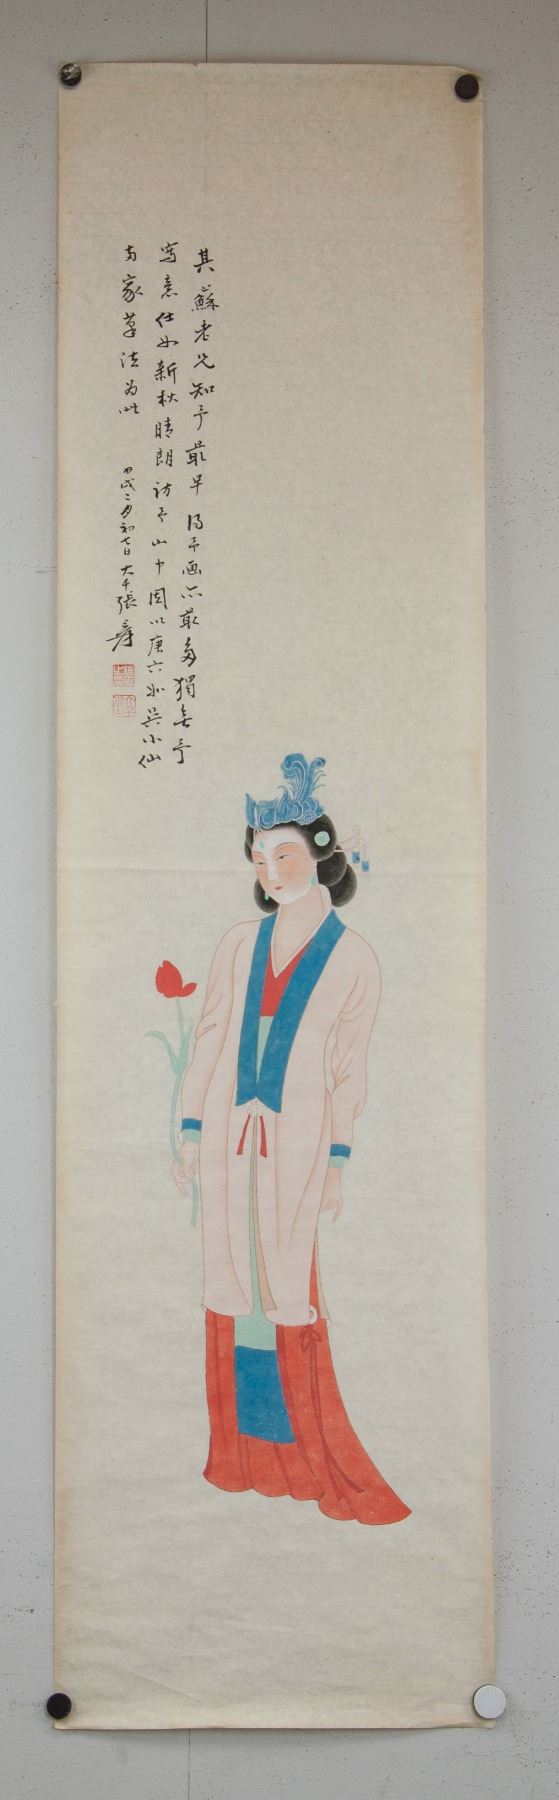 其蘇老兄知予最早得予画亦最多獨無予
寫意仕女新秋晴朗訪予山中因以唐六如吳小仙
両家筆法为此
丙戌二月初七日大千張爰